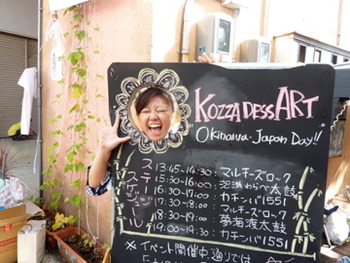 KOZZA DESSART
Okinawa-Japan Day!!
ステージスケジュール
13:45-14:30: マルチーズロック
15:30-16:00: 泡瀬わらべ太鼓
16:30-17:00: カチンバ1551
17:30-18:00: マルチーズロック
18:30-19:00: 夢海渡太鼓
19:00-19:30: カチンバ1551
※イベント開催中通りでは